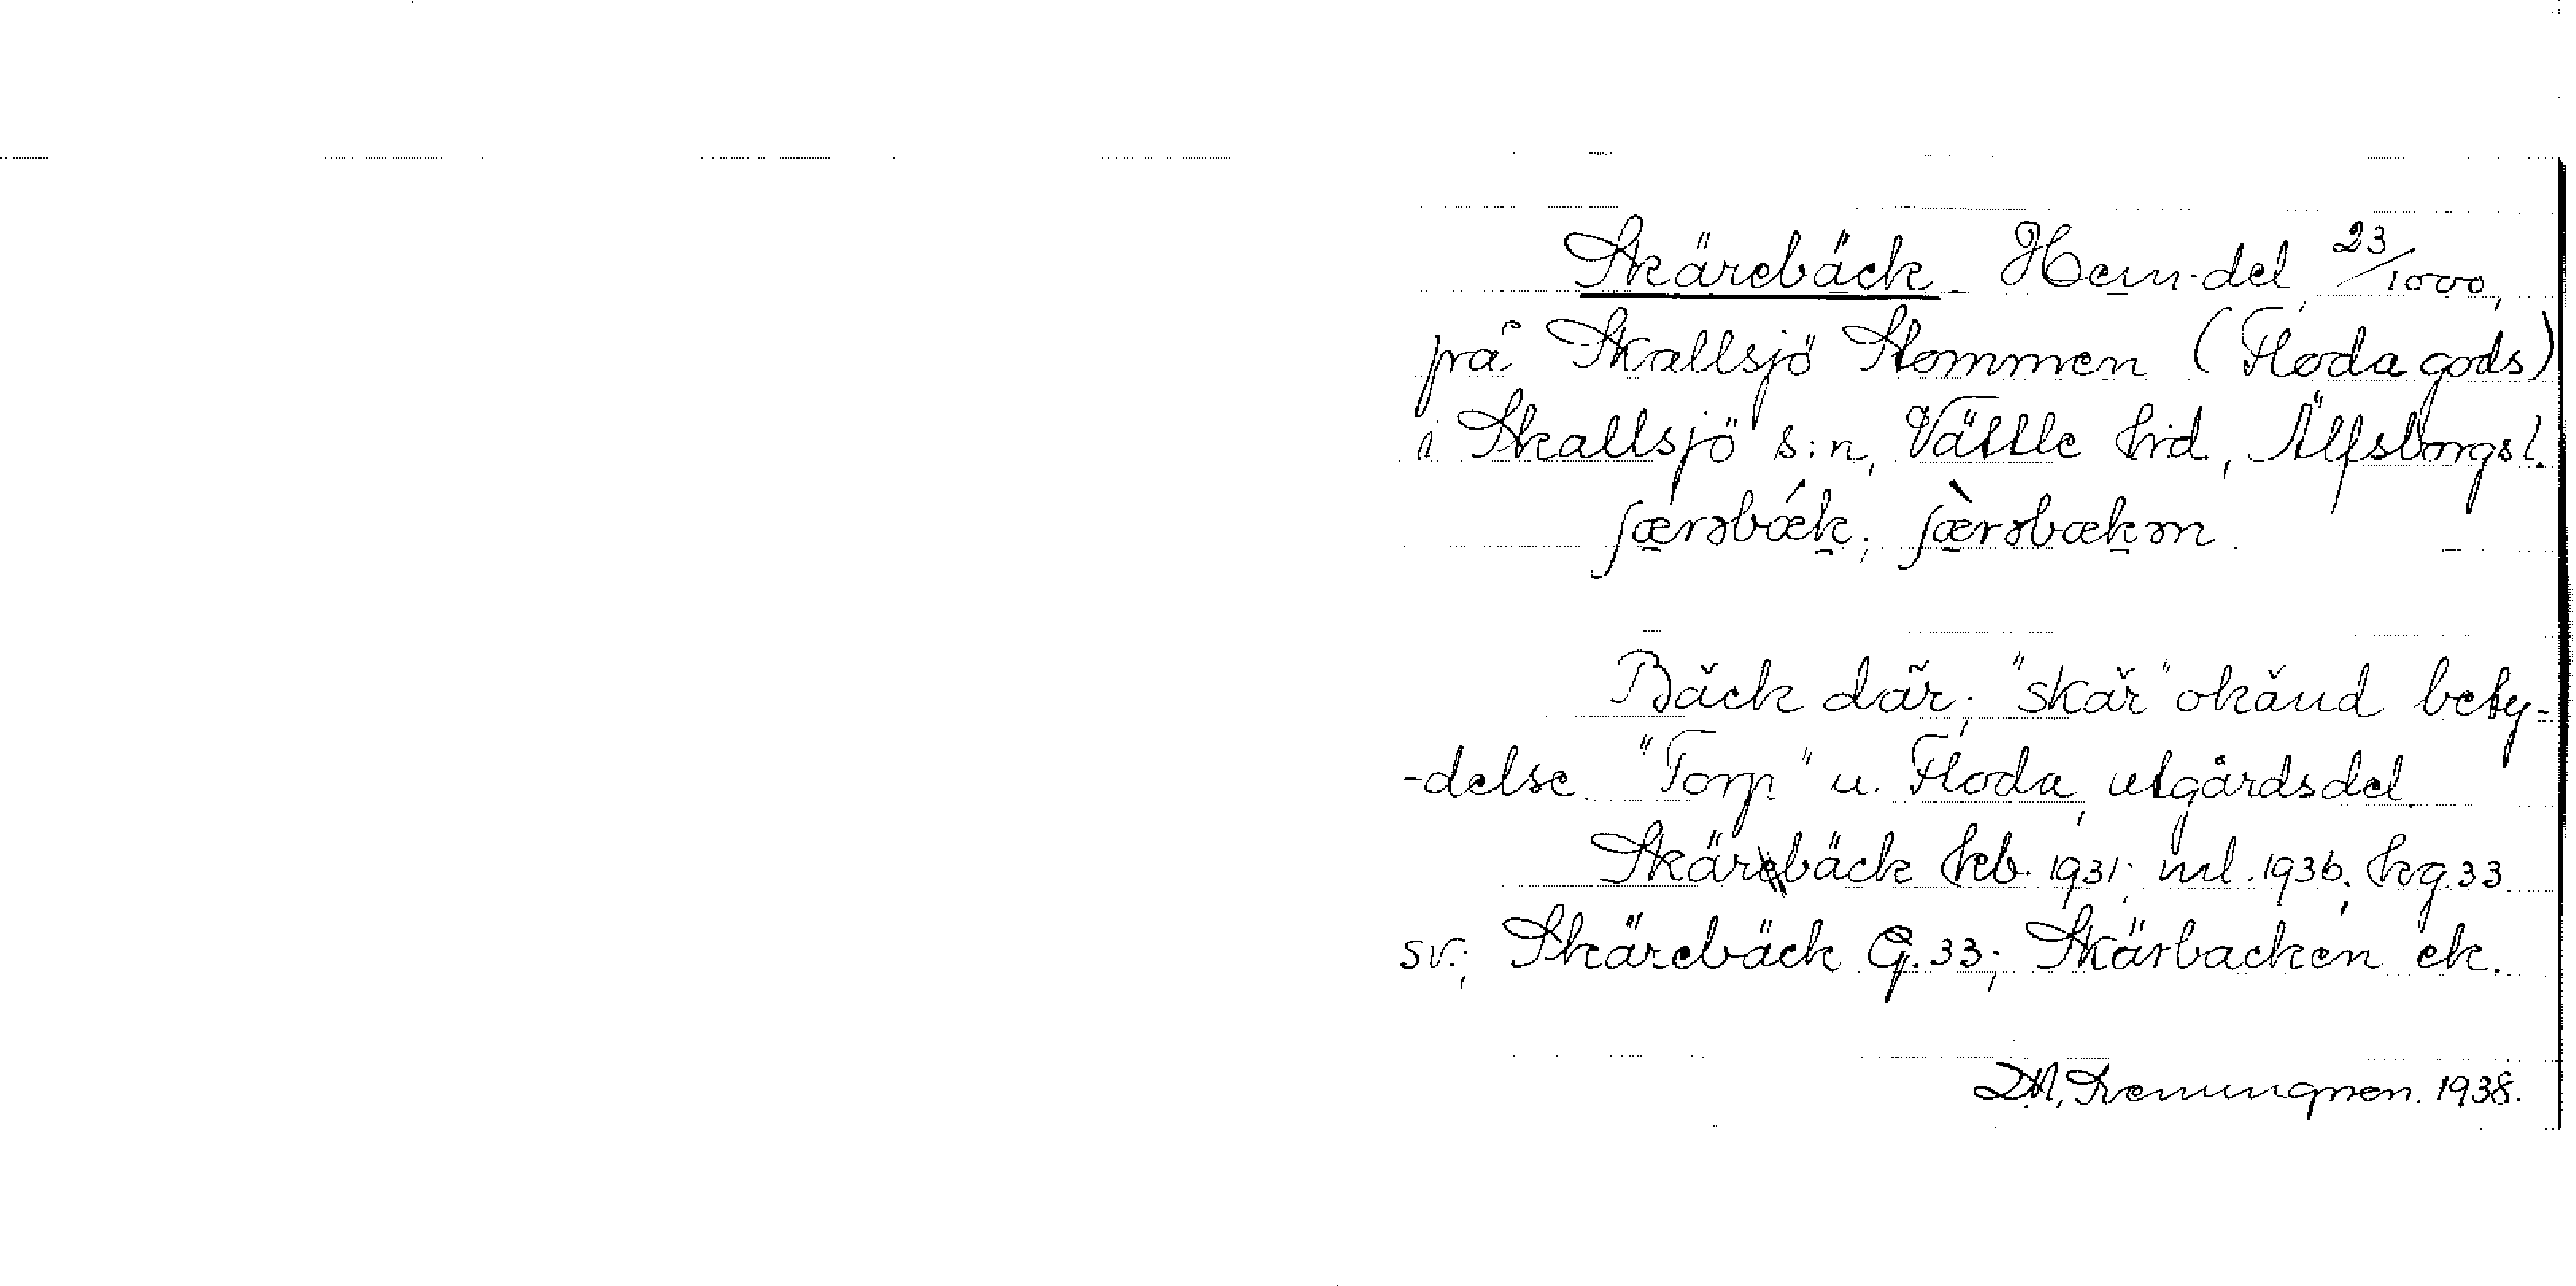 Skärebäck Hem.del, 23/1000,
på Skallsjö Stommen (Floda gods)
i Skallsjö s:n, Vättle hd., Älfsborgs l.
ʃærəbǽk; ʃæ̀rəbækən.
Bäck där; "skär" okänd bety-
-delse. "Torp" u. Floda, utgårdsdel.
Skärbäck hfb. 1931; ml. 1936; kg. 33
sv.; Skärebäck G. 33; Skärbacken ek.
1938.